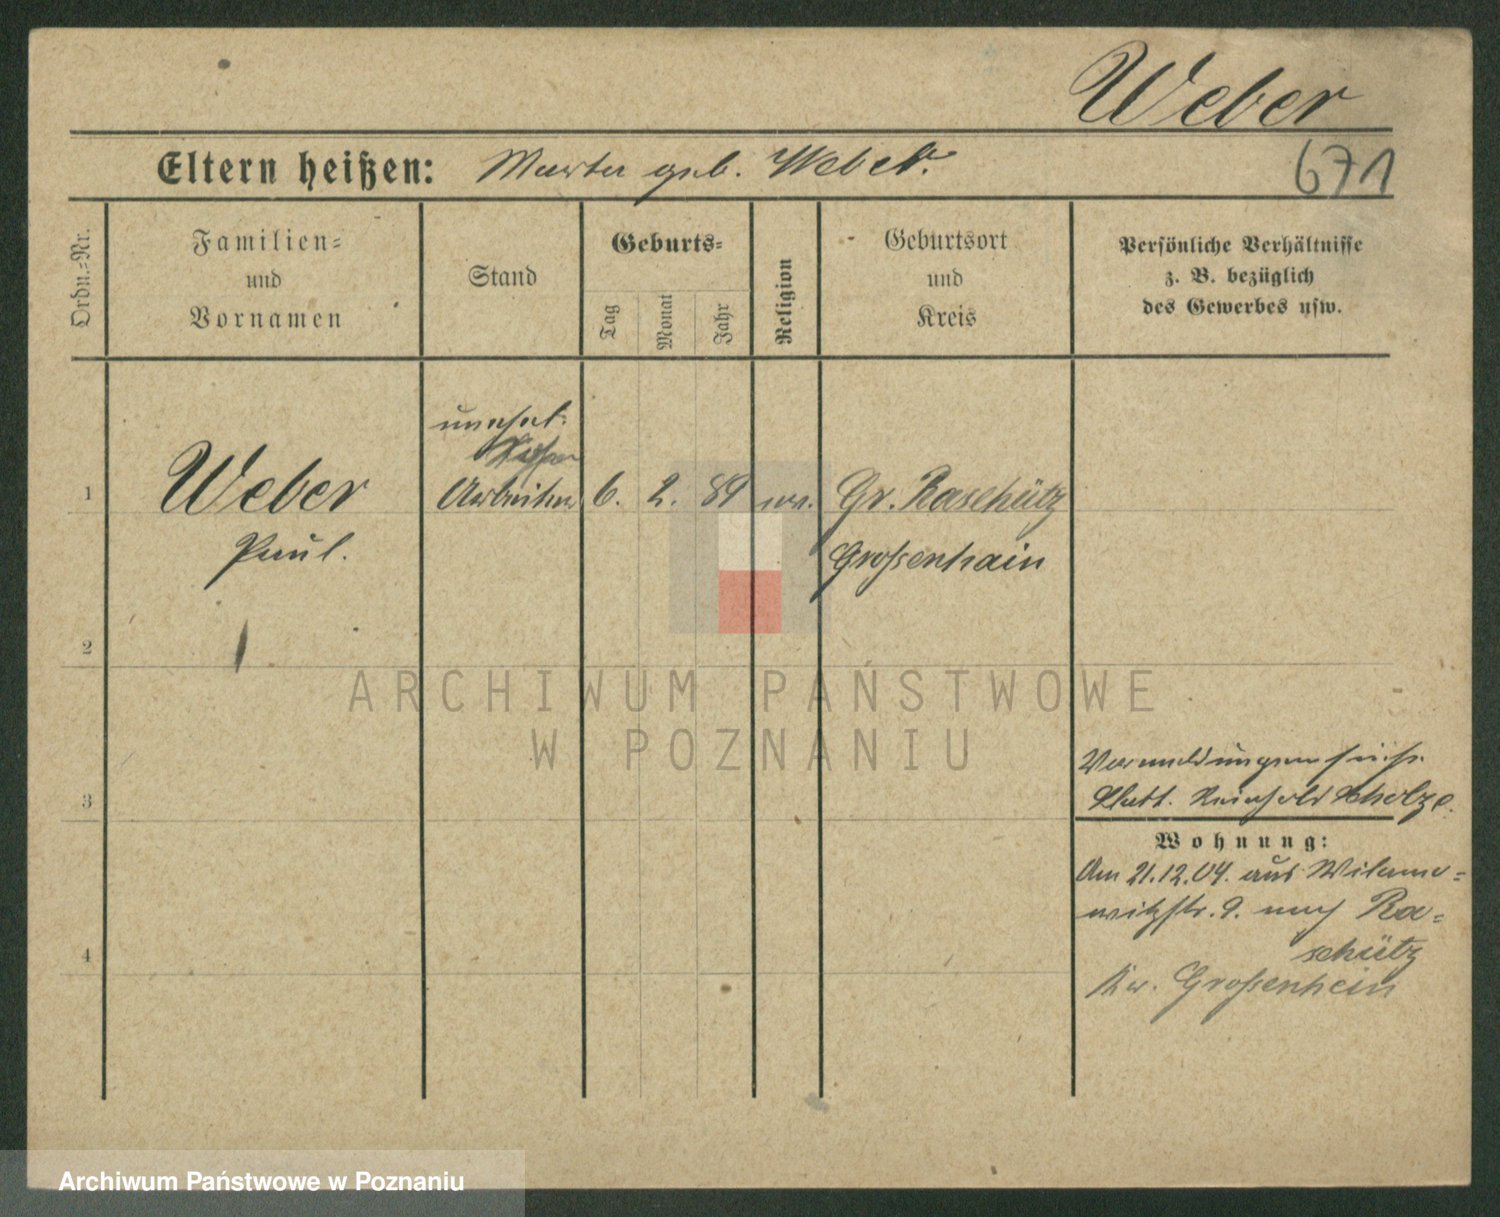 Weber
Eltern heißen: geb. Weber.
671
Ordn.-Nr.
Familien-
und
Vornamen
Stand
Geburts-
Tag
Monat
Jahr
Religion
Geburtsort
und
Kreis
Persönliche Verhältnisse
z. B. bezüglich
des Gewerbes usw.
unehel.
1
Weber
Arbeiter
6.
2.
89
Gr. Raschütz
Paul.
Großenhain
2
3
4
Reinhold Scholze.
Wohnung:
Am 21.12.04. aus Wilamo-
witzstr. 9. nach Ra-
schütz
Kr. Großenhein
ARCHIWUM PAŃSTWOWE
W POZNANIU
Archiwum Państwowe w Poznaniu